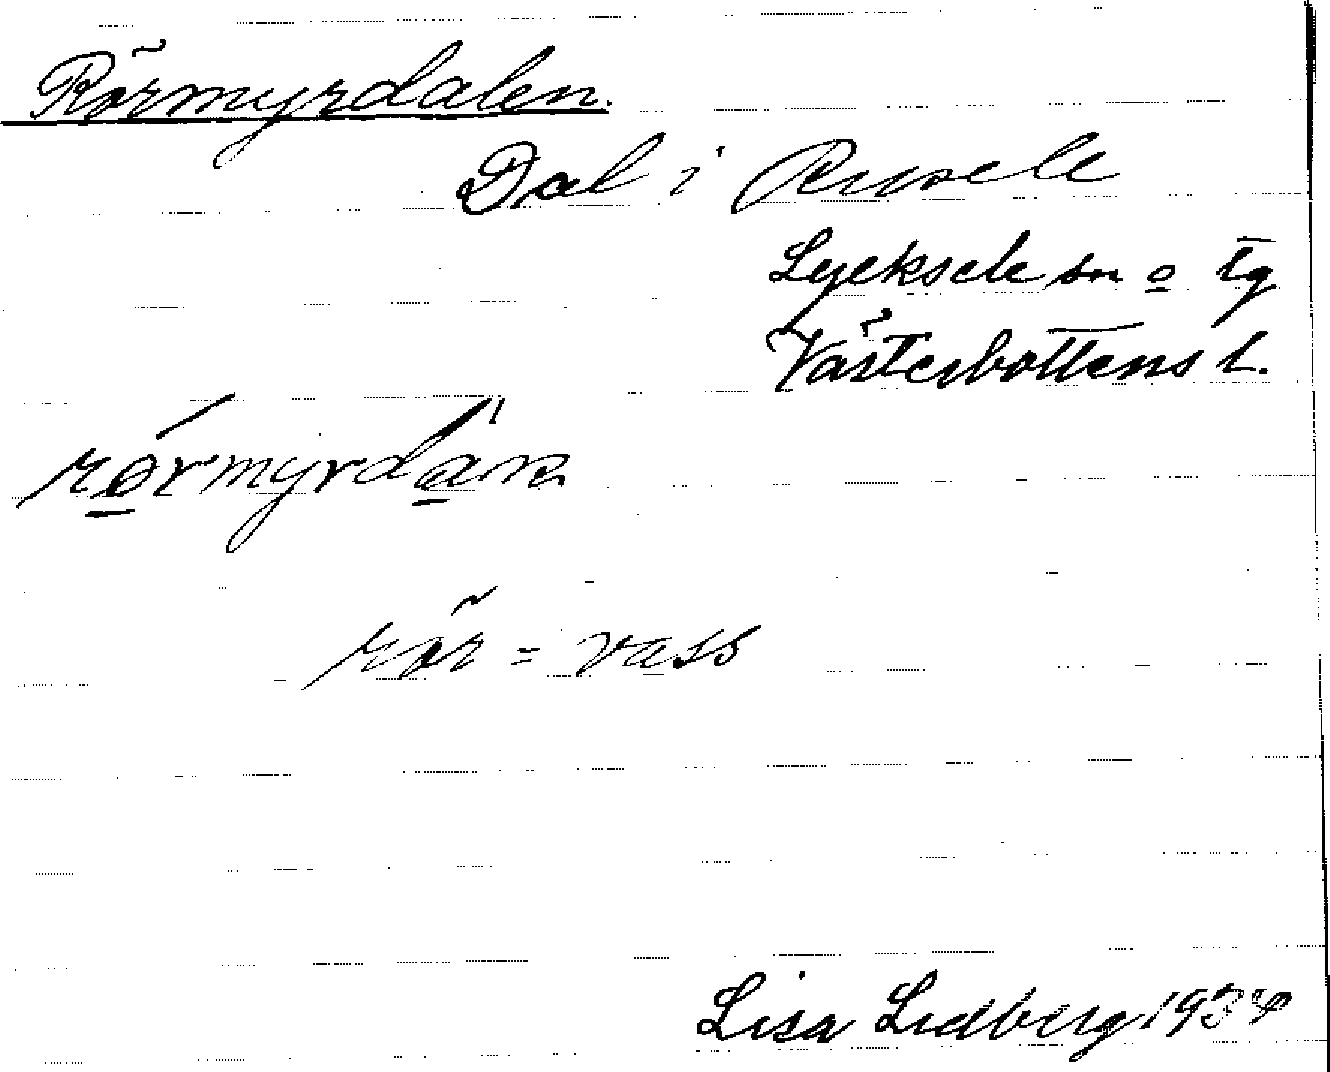 Rörmyrdalen.
Dal i Rusele
Lycksele sn o tg
Västerbottens l.
rör = vass
Lisa Lidberg 1934